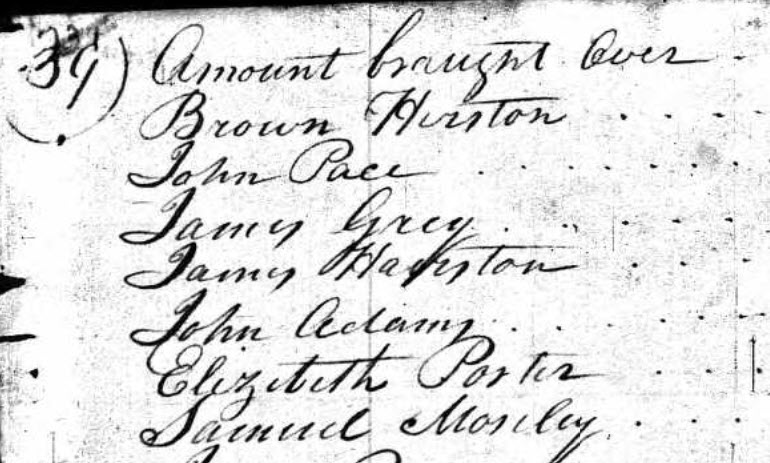 39) Amount braught Over
Brown Hirston
John Pace
James Grey
James Hairston
John Adams
Elizebeth Porter
Samuel Moseley